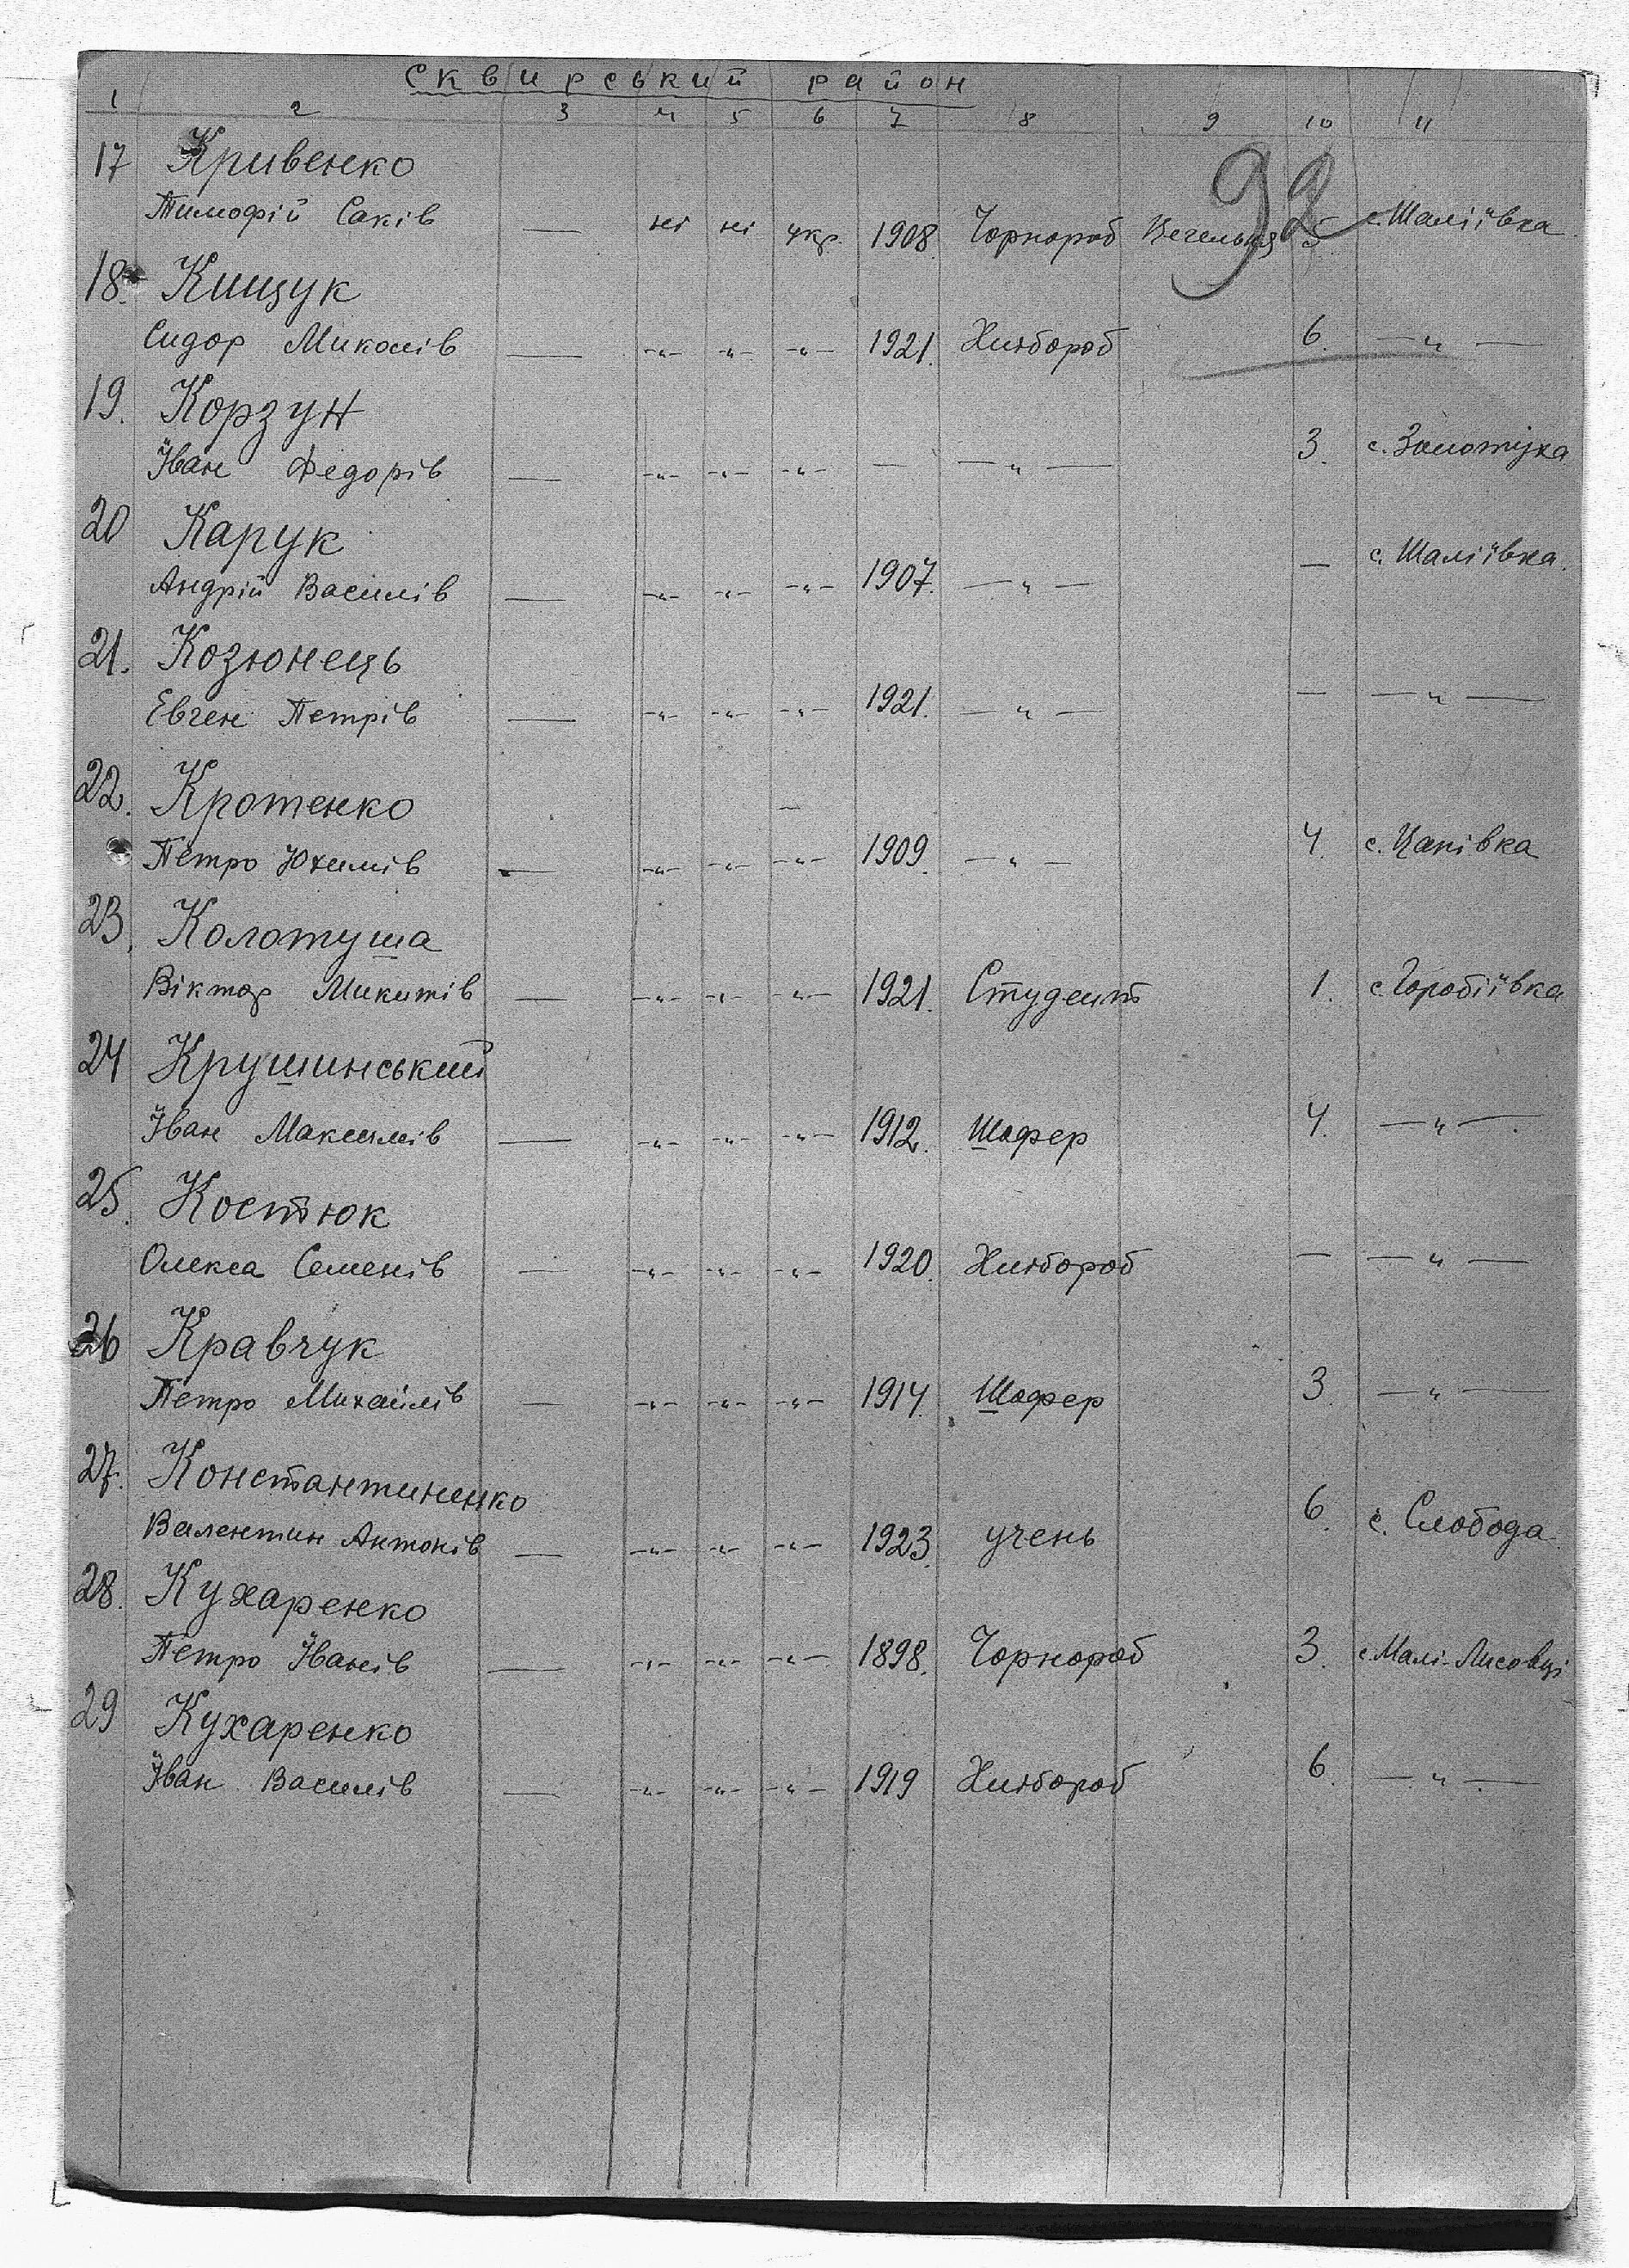 Сквирський район
1 2 3 4 5 6 7 8 9 10 11
92
17 Кривенко
Тимофій Саків — ні ні укр. 1908 Чорнороб 5 с. Шаліївка
18. Кищук
Сидор Миколів — -"- -"- -"- 1921. Хлібороб 6. —"—
19. Корзун
Іван Федорів — -"- -"- -"- — —"— 3. с. Золотуха
20 Карук
Андрій Василів — -"- -"- -"- 1907. —"— — с. Шаліївка.
21. Козюнець
Евген Петрів — -"- -"- -"- 1921. —"— — —"—
22. Кротенко
Петро Юхимів — -"- -"- -"- 1909. —"— 4. с. Цапівка
23. Колотуша
Віктор Микитів — -"- -"- -"- 1921. Студент 1. с. Горобіївка
24 Крушинський
Іван Максимів — -"- -"- -"- 1912. Шофер 4. —"—.
25. Костюк
Олекса Семенів — -"- -"- -"- 1920. Хлібороб — —"—
26 Кравчук
Петро Михайлів — -"- -"- -"- 1914. Шофер 3 —"—
27. Константиненко
Валентин Антонів — -"- -"- -"- 1923. учень 6. с. Слобода.
28. Кухаренко
Петро Іванів — -"- -"- -"- 1898. Чорнороб 3. с. Малі-Лисовці
29 Кухаренко
Іван Василів — -"- -"- -"- 1919 Хлібороб 6. —"—